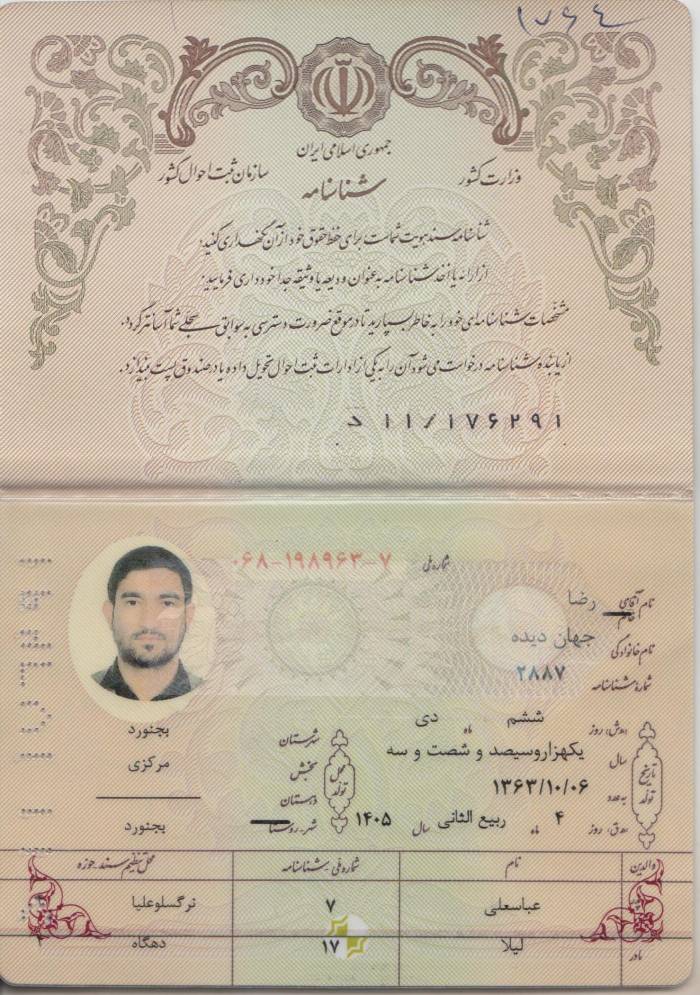 ۱۷۶۴
جمهوری اسلامی ایران
وزارت کشور
سازمان ثبت احوال کشور
شناسنامه
شناسنامه سند هویت شماست برای حفظ حقوق خود از آن نگهداری کنید.
از ارائه یا اخذ شناسنامه به عنوان ودیعه یا وثیقه جدا خودداری فرمایید.
مشخصات شناسنامه‌ای خود را به خاطر بسپارید تا در موقع ضرورت دسترسی به سوابق سجلی شما آسانتر گردد.
از یابنده شناسنامه درخواست می‌شود آن را به یکی از ادارات ثبت احوال تحویل داده یا در صندوق پست بیندازد.
د ۱۱/۱۷۶۲۹۱
شماره ملی ۰۶۸-۱۹۸۹۶۳-۷
نام آقای/خانم رضا
نام خانوادگی جهان دیده
شماره شناسنامه ۲۸۸۷
تاریخ تولد
روز ششم ماه دی
سال یکهزاروسیصد و شصت و سه
به عدد ۱۳۶۳/۱۰/۰۶
روز ۴ ماه ربیع الثانی سال ۱۴۰۵
محل تولد
شهرستان بجنورد
بخش مرکزی
دهستان
شهر-روستا بجنورد
والدین نام شماره ملی-شناسنامه محل تنظیم سند-حوزه
پدر عباسعلی ۷ نرگسلوعلیا ۲
مادر لیلا ۱۷ دهگاه ۲